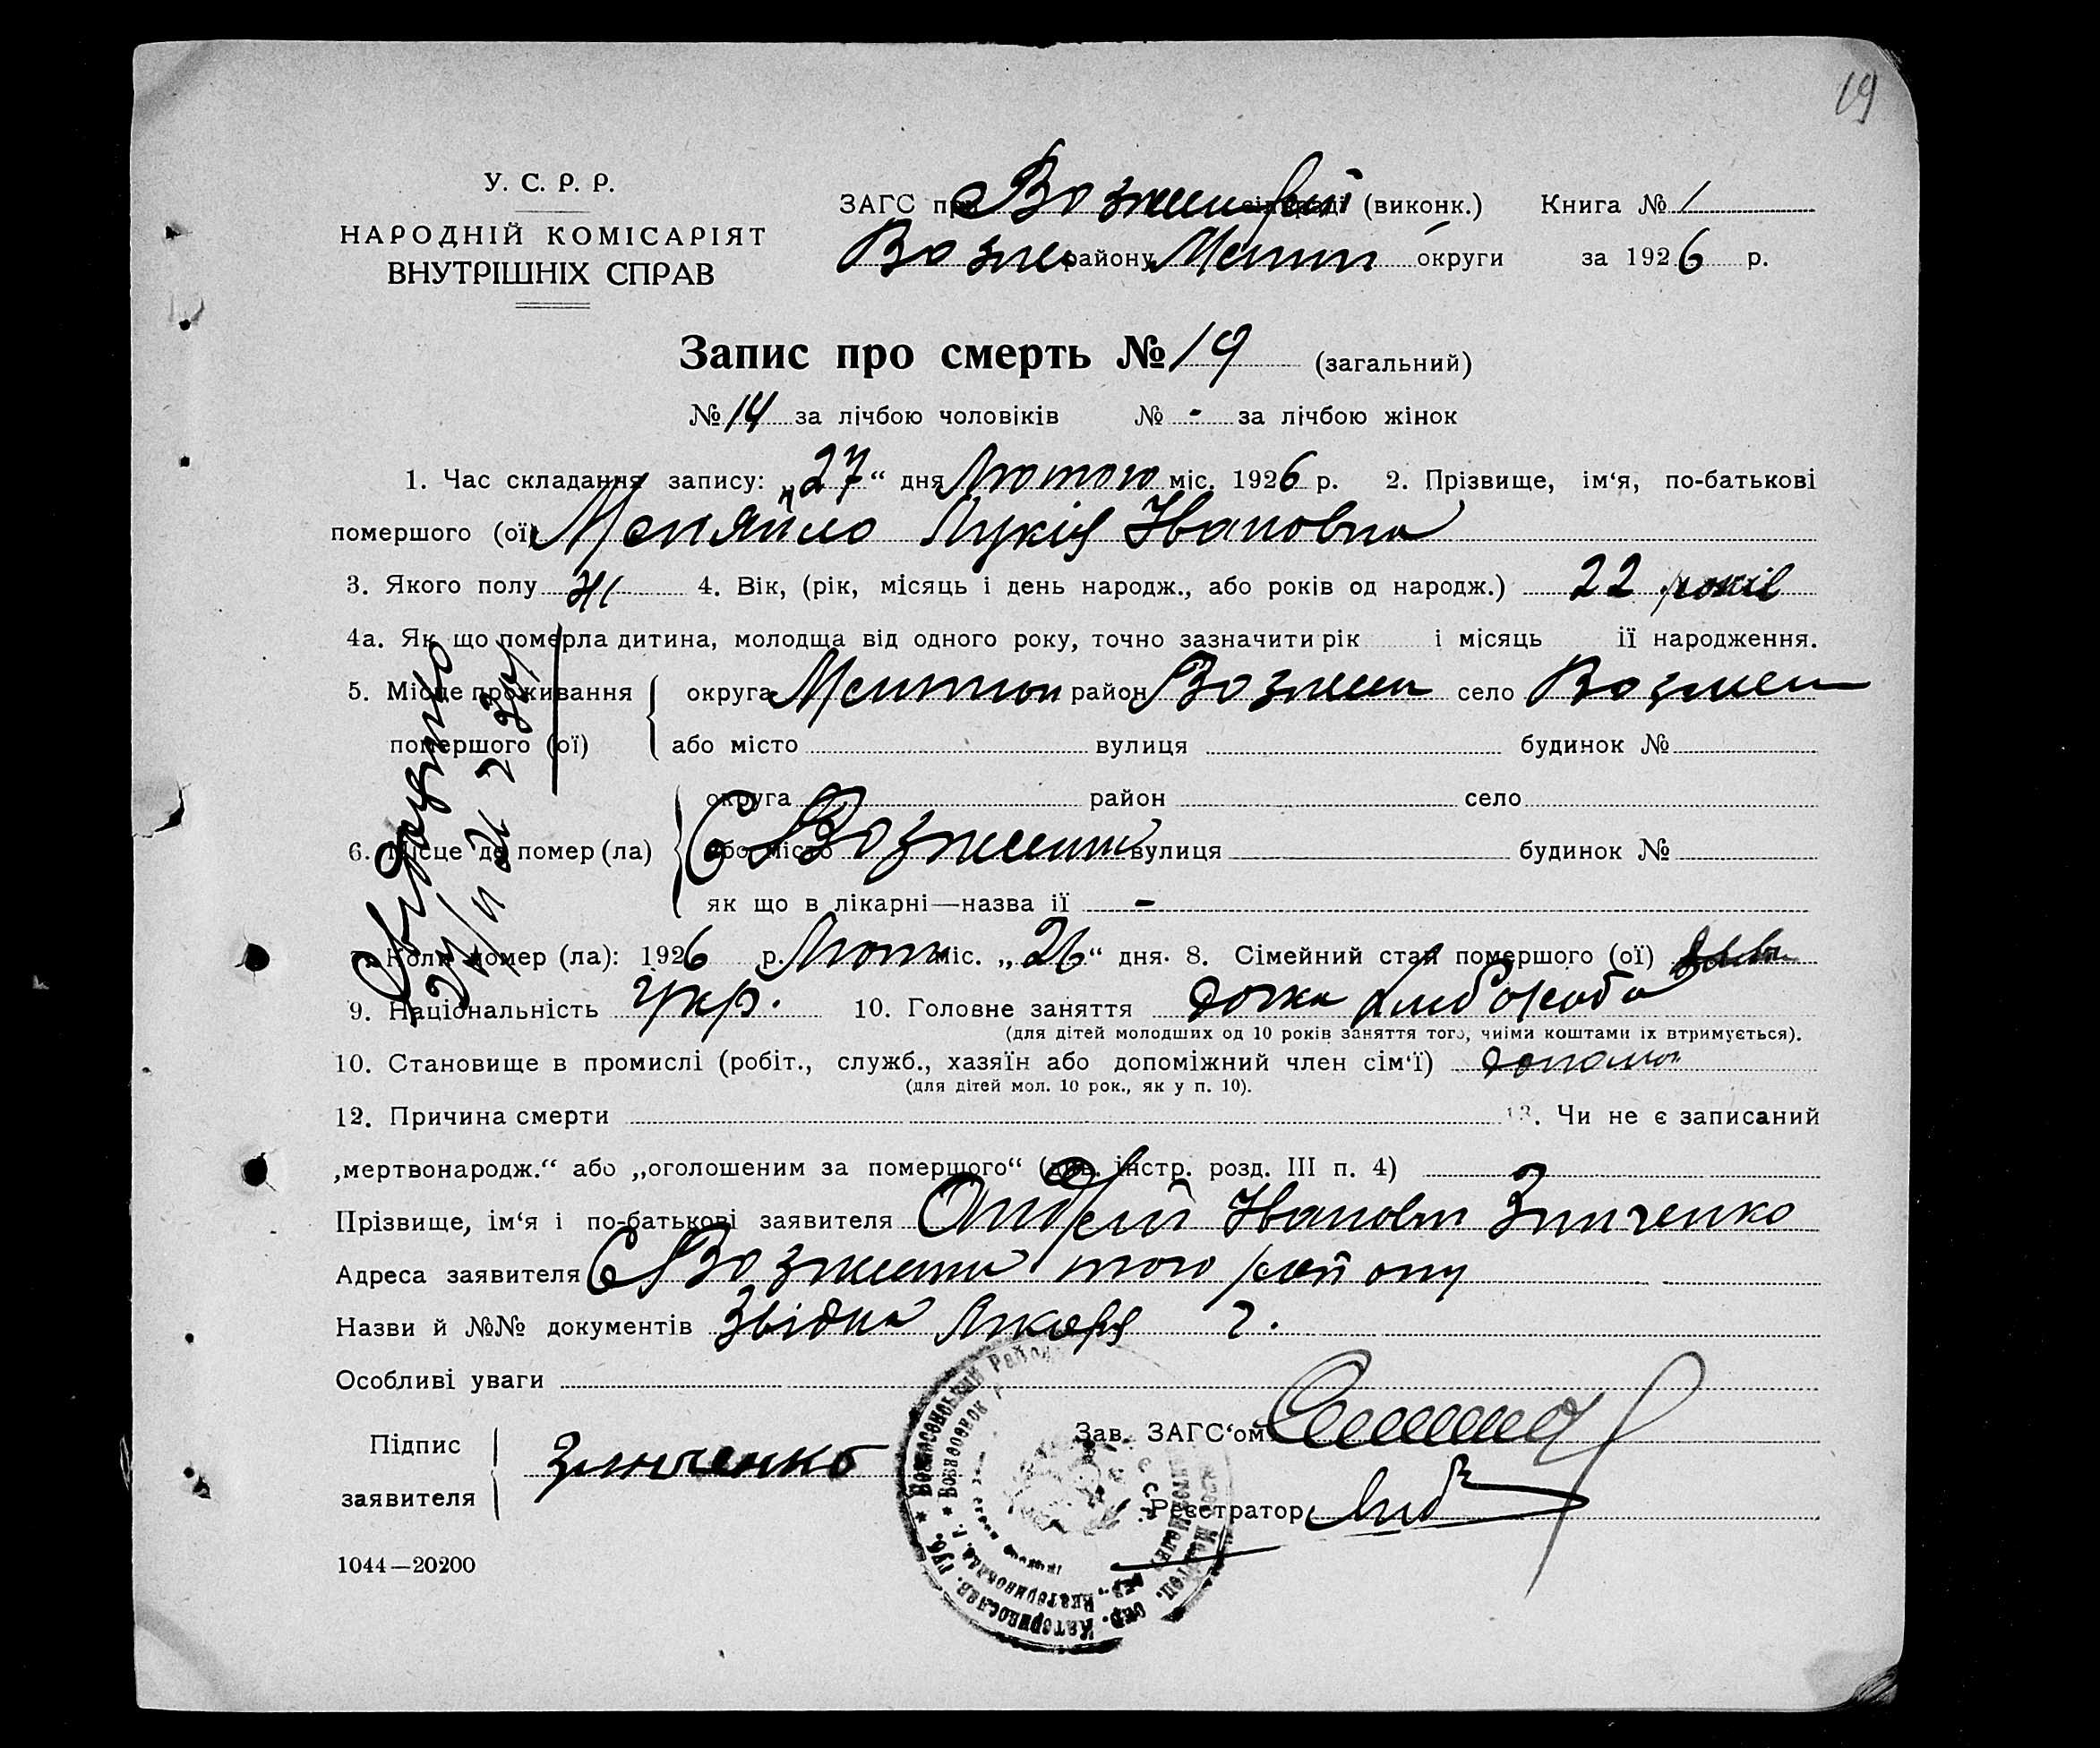 19
У. С. Р. Р.
НАРОДНІЙ КОМІСАРІЯТ
ВНУТРІШНІХ СПРАВ
ЗАГС при (виконк.) Книга № 1
Возне району Мелит округи за 1926 р.
Запис про смерть № 19 (загальний)
№ 14 за лічбою чоловіків № - за лічбою жінок
1. Час складання запису: „27“ дня Лютого міс. 1926 р. 2. Прізвище, ім‘я, по-батькові
помершого (ої) Меняйло Лукія Івановна
3. Якого полу Ж 4. Вік, (рік, місяць і день народж., або років од народж.) 22 років
4а. Як що померла дитина, молодща від одного року, точно зазначити рік і місяць її народження.
5. Місце проживання округа район Вознесен село Вознесен
помершого (ої) або місто вулиця будинок №
округа район село
6. Місце де помер (ла) або місто С Вознесен вулиця будинок №
як що в лікарні—назва її -
7. Коли помер (ла): 1926 р. міс. „26“ дня. 8. Сімейний стан помершого (ої)
9. Національність Укр. 10. Головне заняття дочка хлібороба
(для дітей молодших од 10 років заняття того, чиїми коштами їх втримується).
10. Становище в промислі (робіт., служб., хазяїн або допоміжний член сім‘ї) допомог
(для дітей мол. 10 рок., як у п. 10).
12. Причина смерти 13. Чи не є записаний
„мертвонародж.“ або „оголошеним за померщого“ (див. інстр. розд. III п. 4)
Прізвище, ім‘я і по-батькові заявителя Андрей Іванович Зинченко
Адреса заявителя С Вознесени того району
Назви й №№ документів Звідка Лікаря
Особливі уваги
Підпис
заявителя Зинченко
Зав. ЗАГС‘ом
Реєстратор
1044—20200